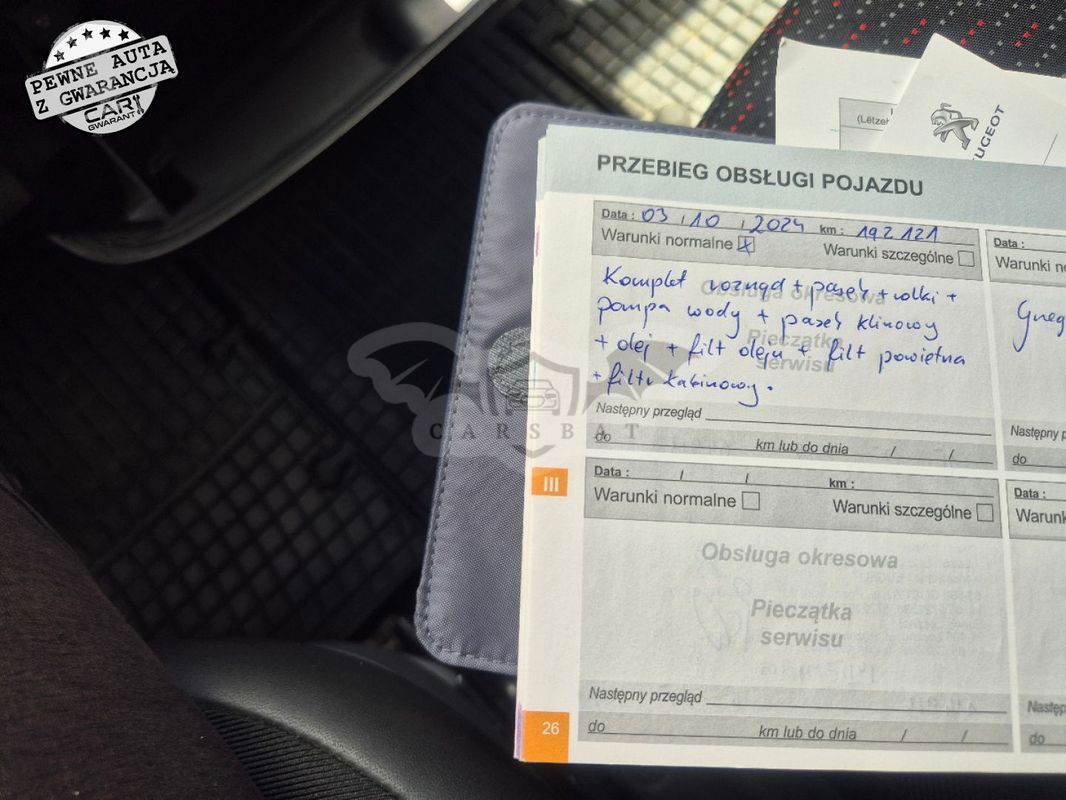 PEWNE AUTA
Z GWARANCJĄ
CAR
GWARANT
(Lëtzeb
PEUGEOT
PRZEBIEG OBSŁUGI POJAZDU
Data : 03 / 10 / 2024 km : 192 121
Warunki normalne Warunki szczególne
Data :
Warunki no
Obsługa okresowa
Pieczątka
serwisu
Komplet rozrząd + pasek + rolki +
pompa wody + pasek klinowy
+ olej + filt oleju + filt powietrza
+ filtr kabinowy.
Następny przegląd
do km lub do dnia / /
Następny p
do
CARSBAT
III
Data : / / km :
Warunki normalne Warunki szczególne
Data :
Warunk
Obsługa okresowa
Pieczątka
serwisu
Następny przegląd
do km lub do dnia / /
Następ
do
26